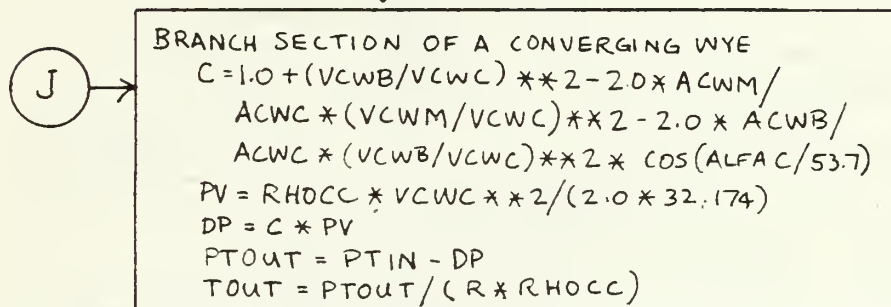 BRANCH SECTION OF A CONVERGING WYE
J
C=1.0+(VCWB/VCWC)**2-2.0*ACWM/
ACWC*(VCWM/VCWC)**2-2.0*ACWB/
ACWC*(VCWB/VCWC)**2*COS(ALFAC/53.7)
PV=RHOCC*VCWC**2/(2.0*32.174)
DP=C*PV
PTOUT=PTIN-DP
TOUT=PTOUT/(R*RHOCC)